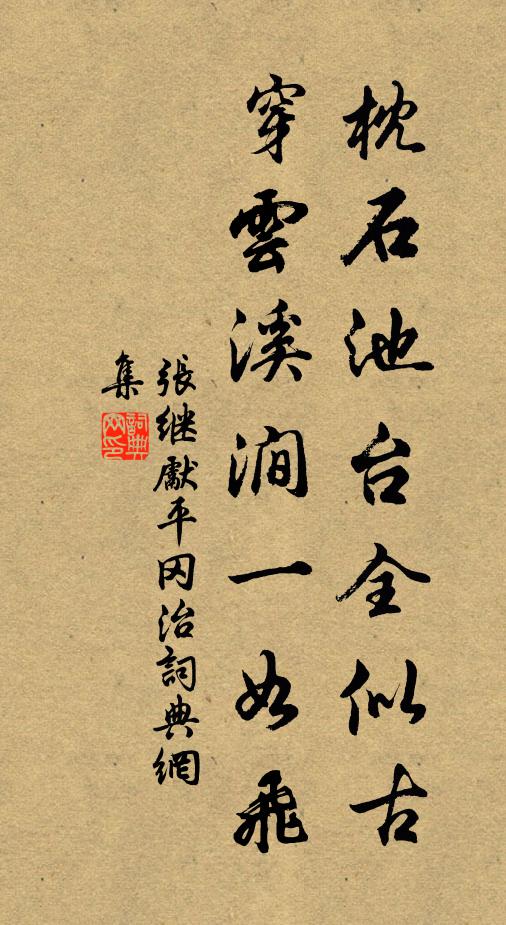 枕石池台全似古
穿雲溪澗一如飛
張继獻平冈治詞典網
集
詞典网印